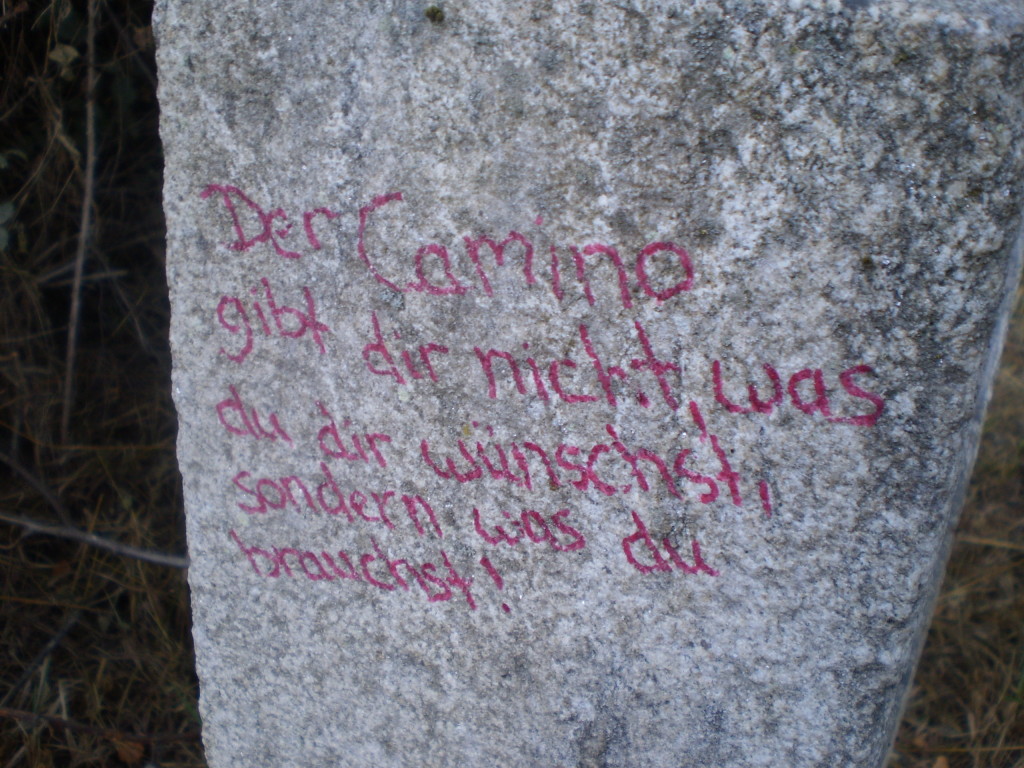 Der Camino
gibt dir nicht, was
du dir wünschst,
sondern was du
brauchst!